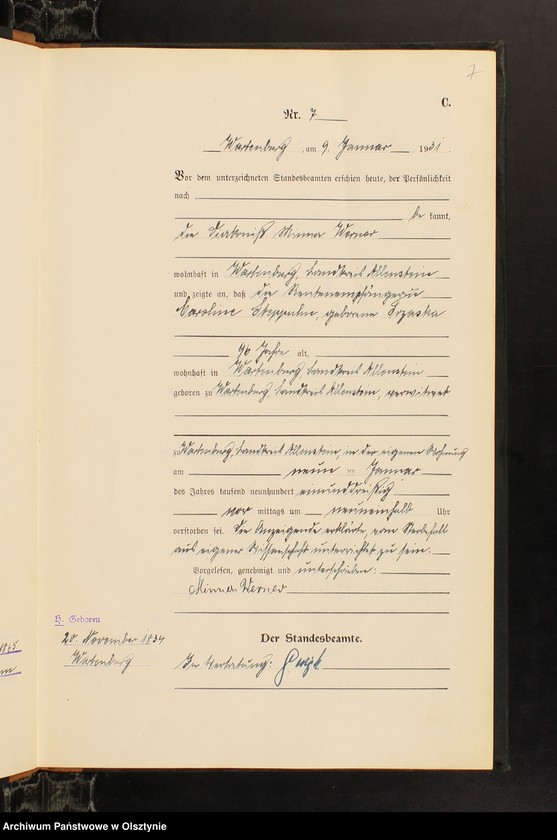 7
C.
Nr. 7
Wartenburg, am 9. Januar 1931.
Vor dem unterzeichneten Standesbeamten erschien heute, der Persönlichkeit
nach
be kannt,
die Diakoniss Minna Werner
wohnhaft in Wartenburg, Landkreis Allenstein
und zeigte an, daß die Rentenempfängerin
Caroline geborene
96 Jahre alt,
wohnhaft in Wartenburg, Landkreis Allenstein
geboren zu Wartenburg, Landkreis Allenstein, verwitwet
zu Wartenburg, Landkreis Allenstein, in der eigenen Wohnung
am neun ten Januar
des Jahres tausend neunhundert einunddreißig
vor mittags um neuneinhalb Uhr
verstorben sei. Die Anzeigende erklärte, vom Sterbefall
aus eigener Wissenschaft unterrichtet zu sein.
Vorgelesen, genehmigt und unterschrieben:
Minna Werner
H. Geboren
20. November 1834
Wartenburg
Der Standesbeamte.
In Vertretung:
Archiwum Państwowe w Olsztynie